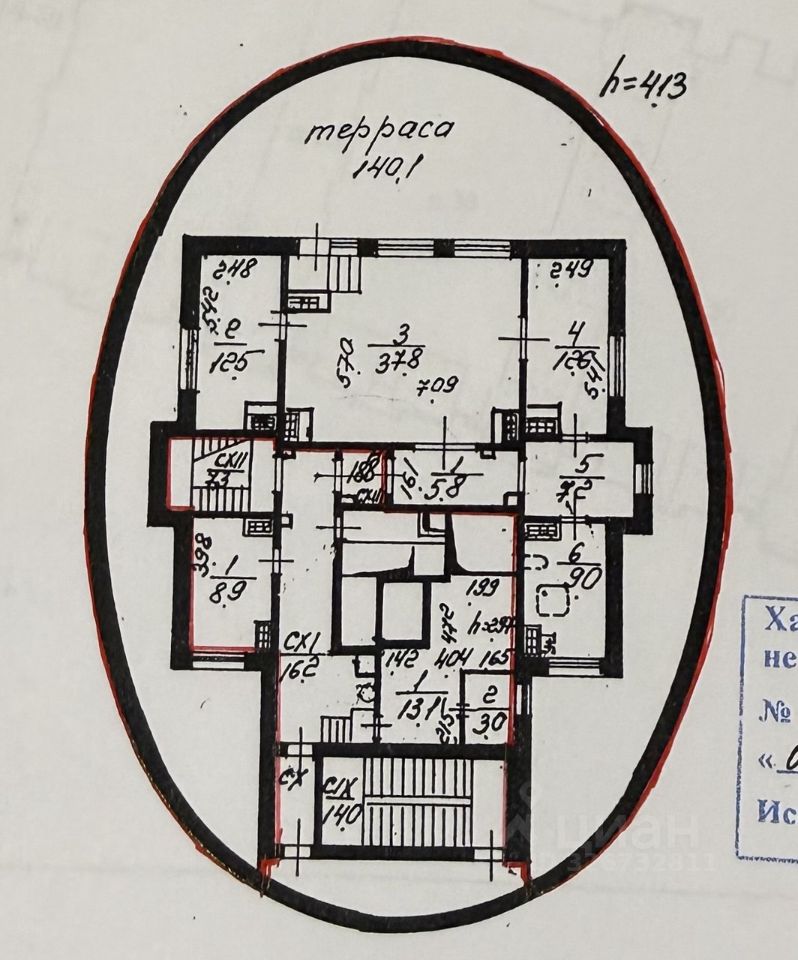 h=4,13
терраса
140,1
2,48
2,49
5,42
2
12,5
3
37,8
5,70
7,09
4
12,6
5,41
СXII
7,3
1,88
СXI
1,61
1
5,8
5
7,2
3,98
1
8,9
6
9,0
1,99
4,72
h=2,97
СXI
16,2
1,42
4,04
1,65
1
13,1
2,15
2
3,0
СX
СIX
14,0
Ха
не
№
«
Ис
циан